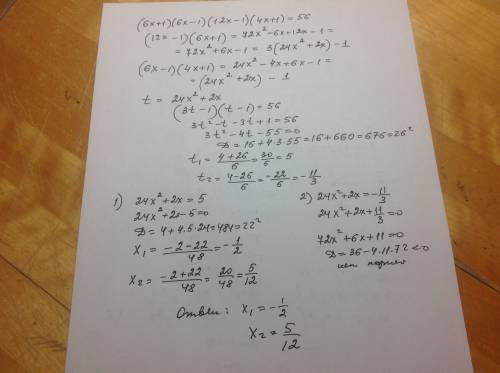 (6x+1)(6x-1)(12x-1)(4x+1)=56
(12x-1)(6x+1)=72x²-6x+12x-1=
=72x²+6x-1=3(24x²+2x)-1
(6x-1)(4x+1)=24x²-4x+6x-1=
=(24x²+2x)-1
t=24x²+2x
(3t-1)(t-1)=56
3t²-t-3t+1=56
3t²-4t-55=0
D=16+4·3·55=16+660=676=26²
t₁=4+26/6=30/6=5
t₂=4-26/6=-22/6=-11/3
1) 24x²+2x=5
24x²+2x-5=0
D=4+4·5·24=484=22²
x₁=-2-22/48=-1/2
x₂=-2+22/48=20/48=5/12
2) 24x²+2x=-11/3
24x²+2x+11/3=0
72x²+6x+11=0
D=36-4·11·72<0
нет корней
Ответ: x₁=-1/2
x₂=5/12